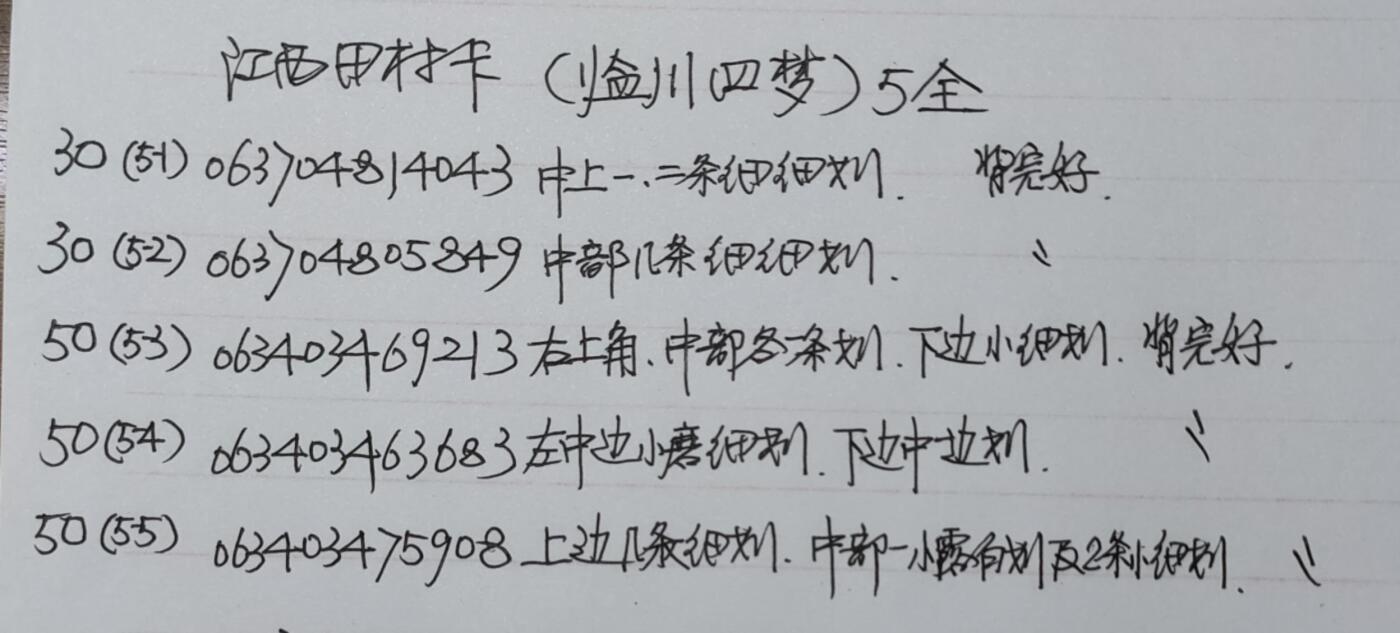 江西田村卡（临川四梦）5全
30（5-1）063704814043 中上一.二条细细划. 背完好.
30（5-2）063704805849 中部几条细细划. 〃
50（5-3）063403469213 右上角、中部各一条划.下边小细划. 背完好.
50（5-4）063403463683 左中边小磨细划.下边中边划. 〃
50（5-5）063403475908 上边几条细划.中部一小露白划及2条小细划. 〃